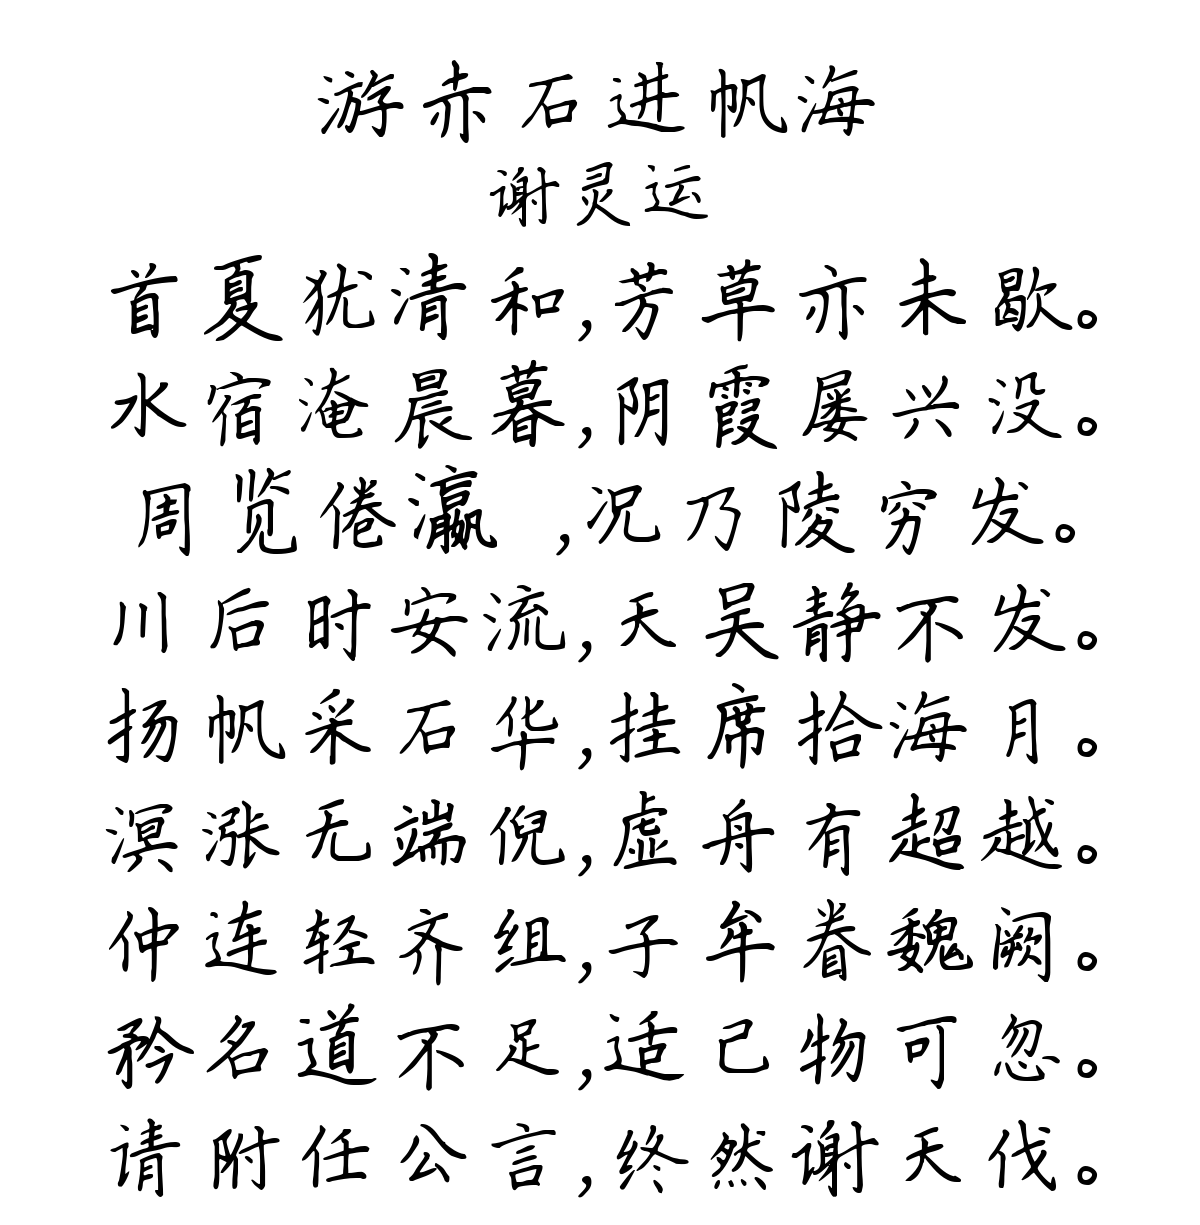 游赤石进帆海
谢灵运
首夏犹清和,芳草亦未歇。
水宿淹晨暮,阴霞屡兴没。
周览倦瀛 ,况乃陵穷发。
川后时安流,天吴静不发。
扬帆采石华,挂席拾海月。
溟涨无端倪,虚舟有超越。
仲连轻齐组,子牟眷魏阙。
矜名道不足,适己物可忽。
请附任公言,终然谢天伐。